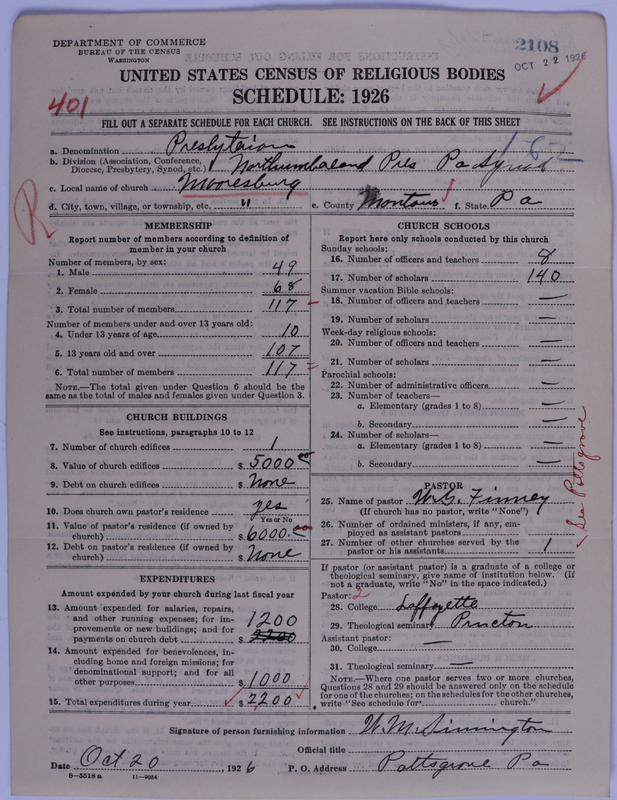 DEPARTMENT OF COMMERCE
BUREAU OF THE CENSUS
WASHINGTON
2108
OCT 22 1926
UNITED STATES CENSUS OF RELIGIOUS BODIES
SCHEDULE: 1926
401
FILL OUT A SEPARATE SCHEDULE FOR EACH CHURCH. SEE INSTRUCTIONS ON THE BACK OF THIS SHEET
a. Denomination Presbyteian
b. Division (Association, Conference, Diocese, Presbytery, Synod, etc.) Northumbaland Pres Pa Synod
c. Local name of church Mooresburg
d. City, town, village, or township, etc. " e. County Montour f. State Pa
R
MEMBERSHIP
Report number of members according to definition of
member in your church
Number of members, by sex:
1. Male 49
2. Female 68
3. Total number of members 117
Number of members under and over 13 years old:
4. Under 13 years of age 10
5. 13 years old and over 107
6. Total number of members 117
NOTE.—The total given under Question 6 should be the
same as the total of males and females given under Question 3.
CHURCH BUILDINGS
See instructions, paragraphs 10 to 12
7. Number of church edifices 1
8. Value of church edifices $ 5000.00
9. Debt on church edifices $ None
10. Does church own pastor's residence yes
Yes or No
11. Value of pastor's residence (if owned by
church) $ 6000.00
12. Debt on pastor's residence (if owned by
church) $ None
EXPENDITURES
Amount expended by your church during last fiscal year
13. Amount expended for salaries, repairs,
and other running expenses; for im-
provements or new buildings; and for
payments on church debt $ 1200
2200
14. Amount expended for benevolences, in-
cluding home and foreign missions; for
denominational support; and for all
other purposes $ 1000
15. Total expenditures during year $ 2200
CHURCH SCHOOLS
Report here only schools conducted by this church
Sunday schools:
16. Number of officers and teachers 8
17. Number of scholars 140
Summer vacation Bible schools:
18. Number of officers and teachers —
19. Number of scholars —
Week-day religious schools:
20. Number of officers and teachers —
21. Number of scholars —
Parochial schools:
22. Number of administrative officers —
23. Number of teachers—
a. Elementary (grades 1 to 8) —
b. Secondary —
24. Number of scholars—
a. Elementary (grades 1 to 8) —
b. Secondary —
PASTOR
25. Name of pastor W. G. Finney
(If church has no pastor, write "None")
26. Number of ordained ministers, if any, em-
ployed as assistant pastors
27. Number of other churches served by the
pastor or his assistants 1
See Pottsgrove
If pastor (or assistant pastor) is a graduate of a college or
theological seminary, give name of institution below. (If
not a graduate, write "No" in the space indicated.)
Pastor: 2
28. College Laffayette
29. Theological seminary Princton
Assistant pastor:
30. College —
31. Theological seminary —
NOTE.—Where one pastor serves two or more churches,
Questions 28 and 29 should be answered only on the schedule
for one of the churches; on the schedules for the other churches,
write "See schedule for church."
Signature of person furnishing information W. M. Sinnington
Official title
Date Oct 20, 1926 P. O. Address Pottsgrove Pa
8-5518 a 11-9084